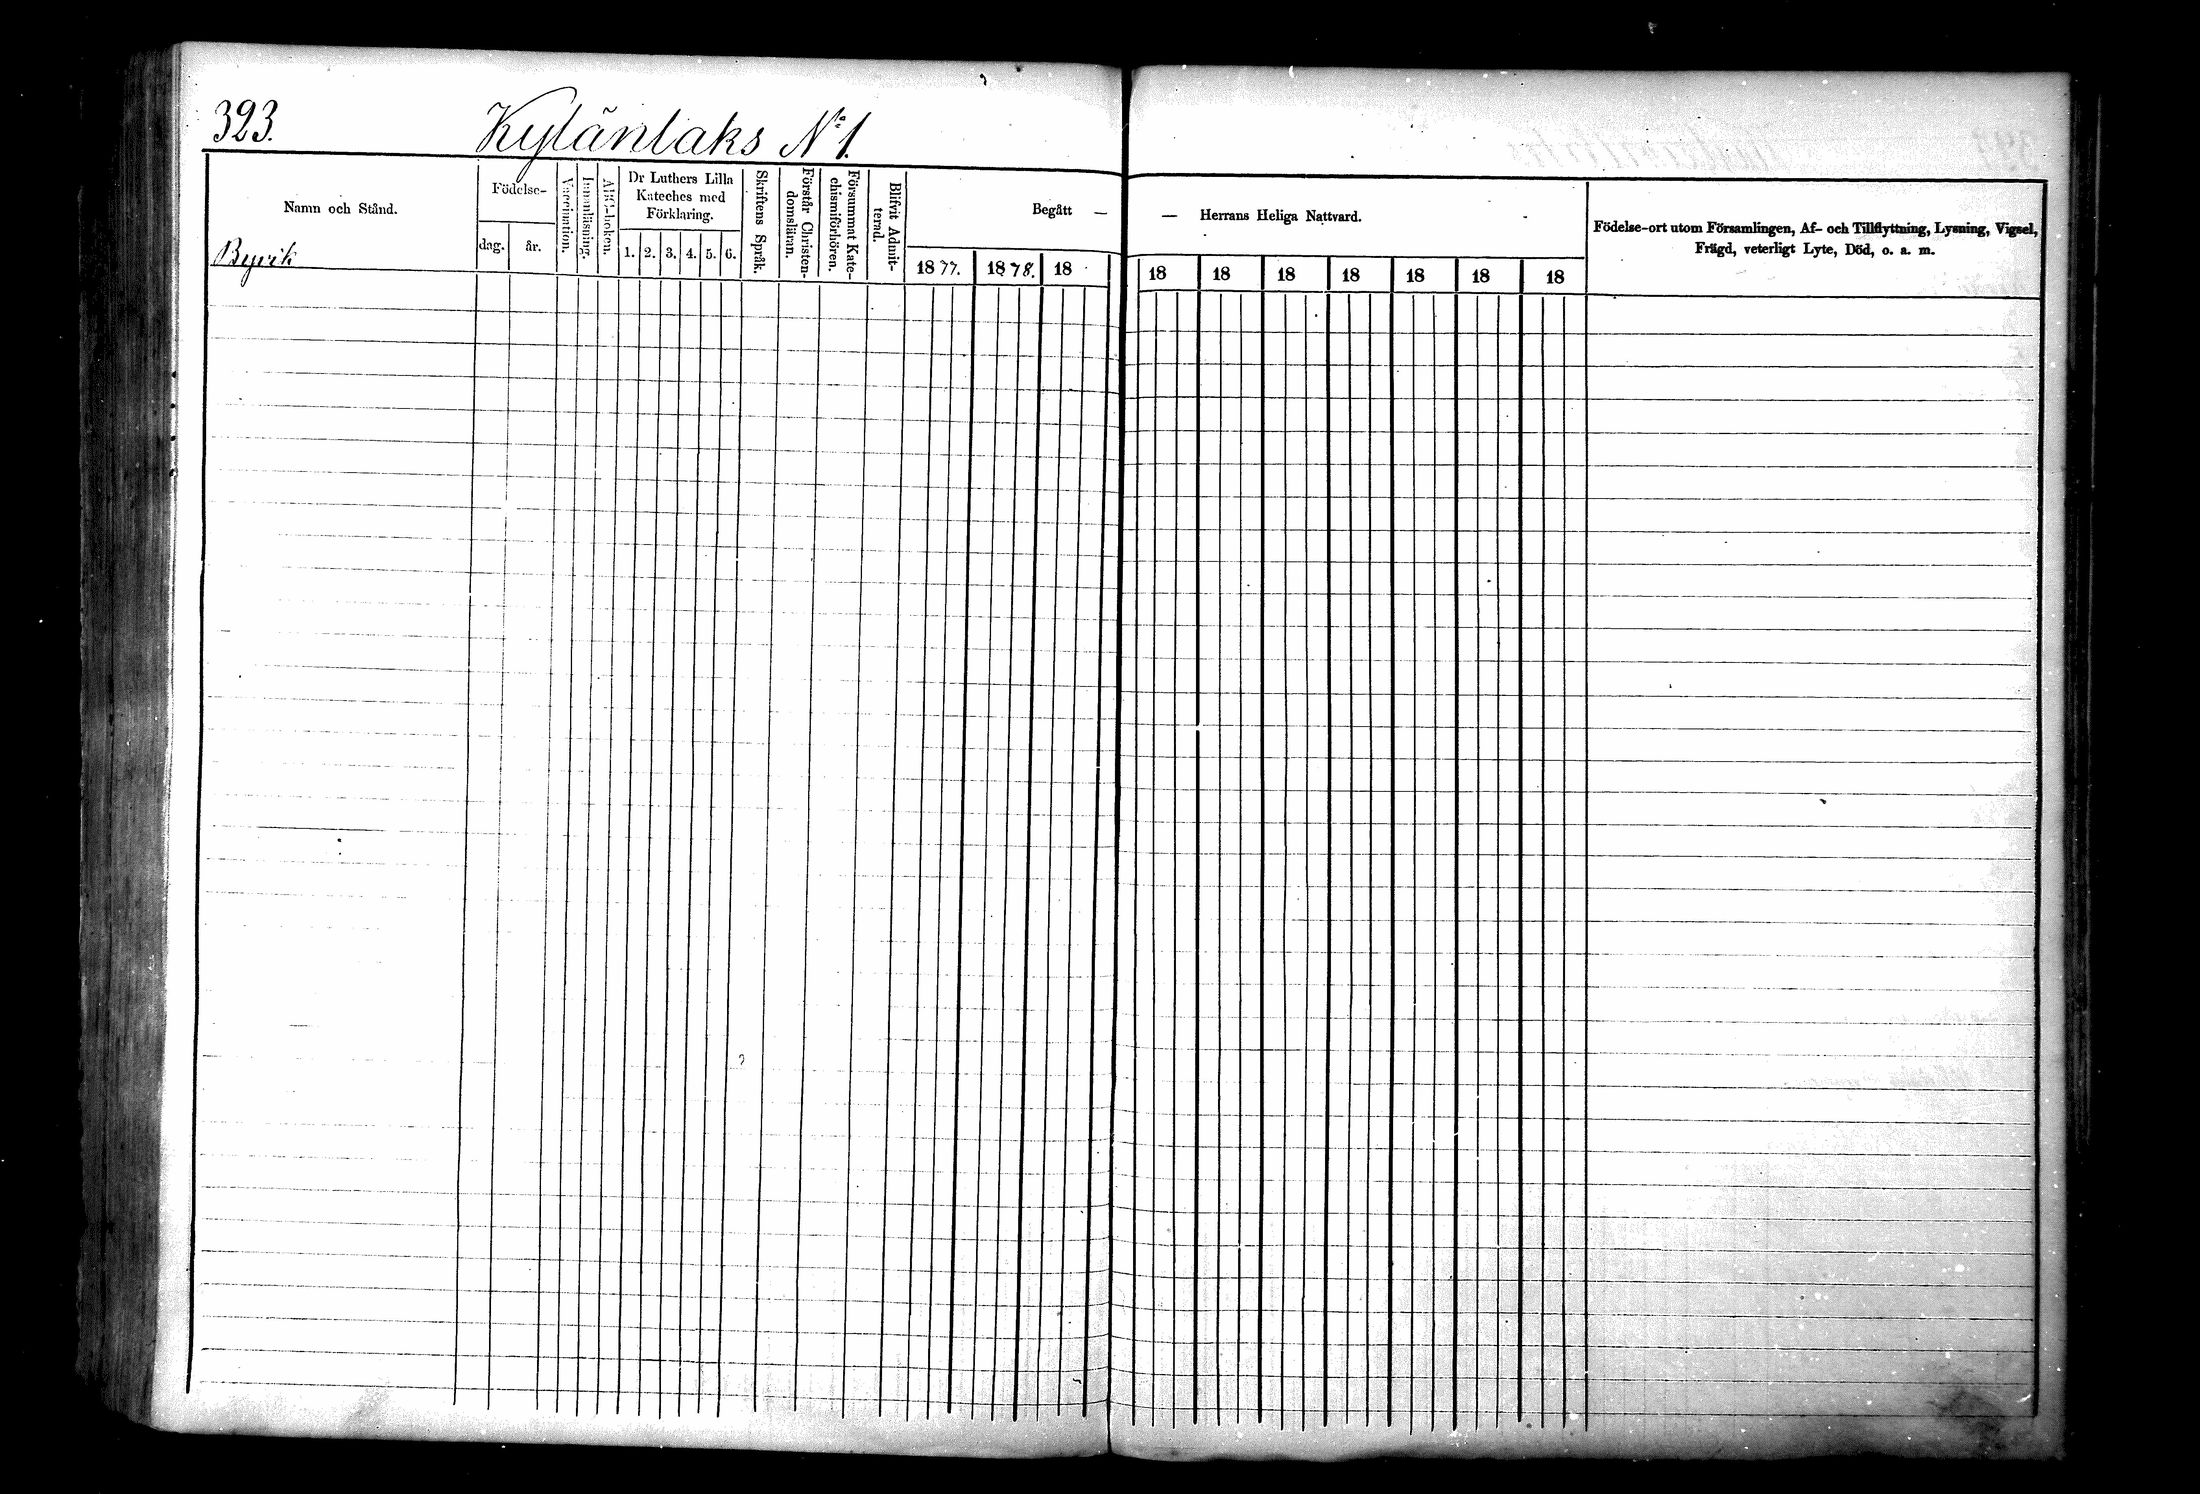 323.
Kylänlaks No 1.
Namn och Stånd.
Byvik
Födelse-
dag. år.
Vaccination.
Innanläsning.
ABC-boken.
Dr Luthers Lilla
Kateches med
Förklaring.
1. 2. 3. 4. 5. 6.
Skriftens Språk.
Förstår Christen-
domsläran.
Försummat Kate-
chismiförhören.
Blifvit Admit-
terad.
Begått —
1877. 1878. 18
— Herrans Heliga Nattvard.
18 18 18 18 18 18 18
Födelse-ort utom Församlingen, Af- och Tillflyttning, Lysning, Vigsel,
Frägd, veterligt Lyte, Död, o. a. m.